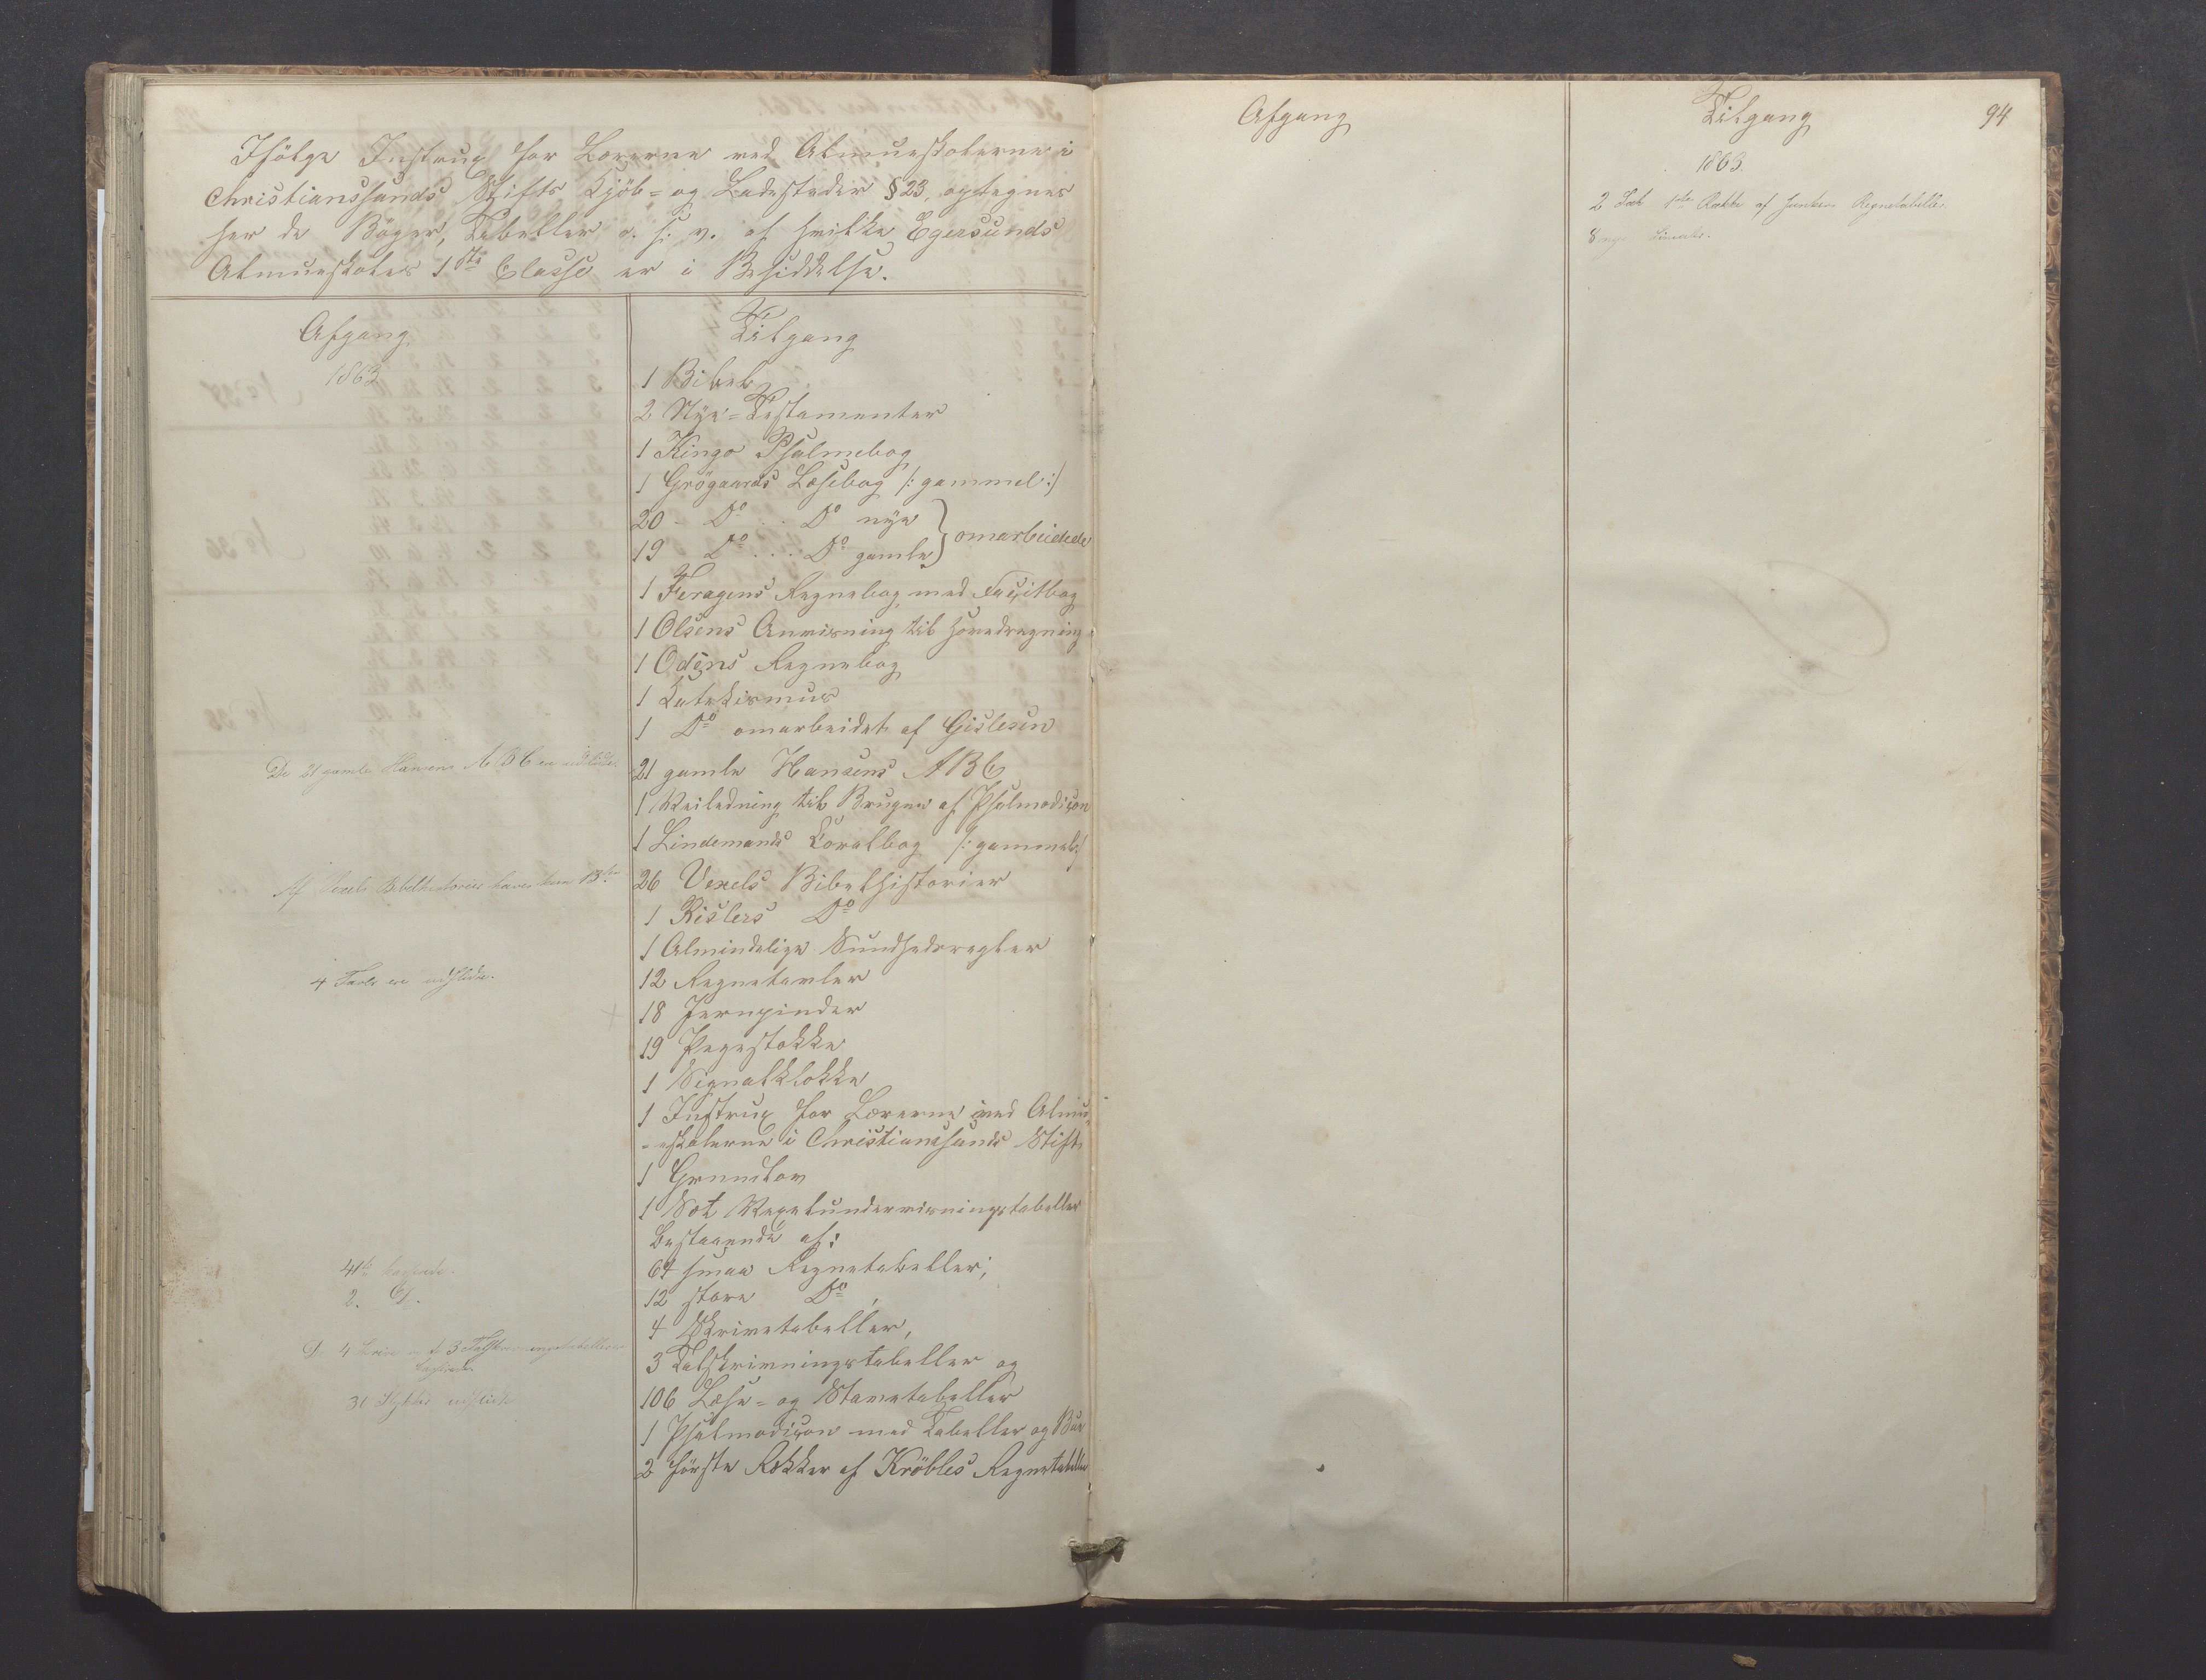 Ifölge Instrux for Lærerne ved Almueskolerne i
Christianssands Stifts Kjöb- og Ladesteder § 23, optegnes
her de Böger, Tabeller o. s. v. af hvilke Egersunds
Almueskoles 1ste Classe er i Besiddelse.
Afgang
1863
De 21 gamle Hansens ABC ere udslidte.
Af Vexels Bibelhistorier haves kun 13
4 Tavler ere udslidte.
2. D.
Tilgang
1 Bibel
2 Nye-Testamenter
1 Kingo Psalmebog
1 Grögaards Læsebog /: gammel :/
20 - Do .. Do nye } omarbeidede
19 Do ... Do gamle
1 Feragens Regnebog med Facitbog
1 Olsens Anvisning til Hovedregning
1 Odêns Regnebog
1 Katekismus
1 Do omarbeidet af Gislesen
21 gamle Hansens ABC
1 Veiledning til Brugen af Psalmodicon
1 Lindemands Koralbog /: gammel :/
26 Vexels Bibelhistorier
1 Rislers Do
1 Almindelige Sundhedsregler
12 Regnetavler
18 Jernpinder
19 Pegestokke
1 Signalklokke
1 Instrux for Lærerne ved Almu-
-eskolerne i Christianssands Stift
1 Grundlov
1 Set Vexelundervisningstabeller
bestaaende af:
64 smaa Regnetabeller;
12 store Do,
4 Skrivetabeller,
3 Talskrivningstabeller og
106 Læse- og Stavetabeller
1 Psalmodicon med Tabeller og Bue
2 förste Rækker af Kröbles Regnetabeller
Afgang
Tilgang
94
1863.
2 1ste Række af Regnetabeller.
8 nye